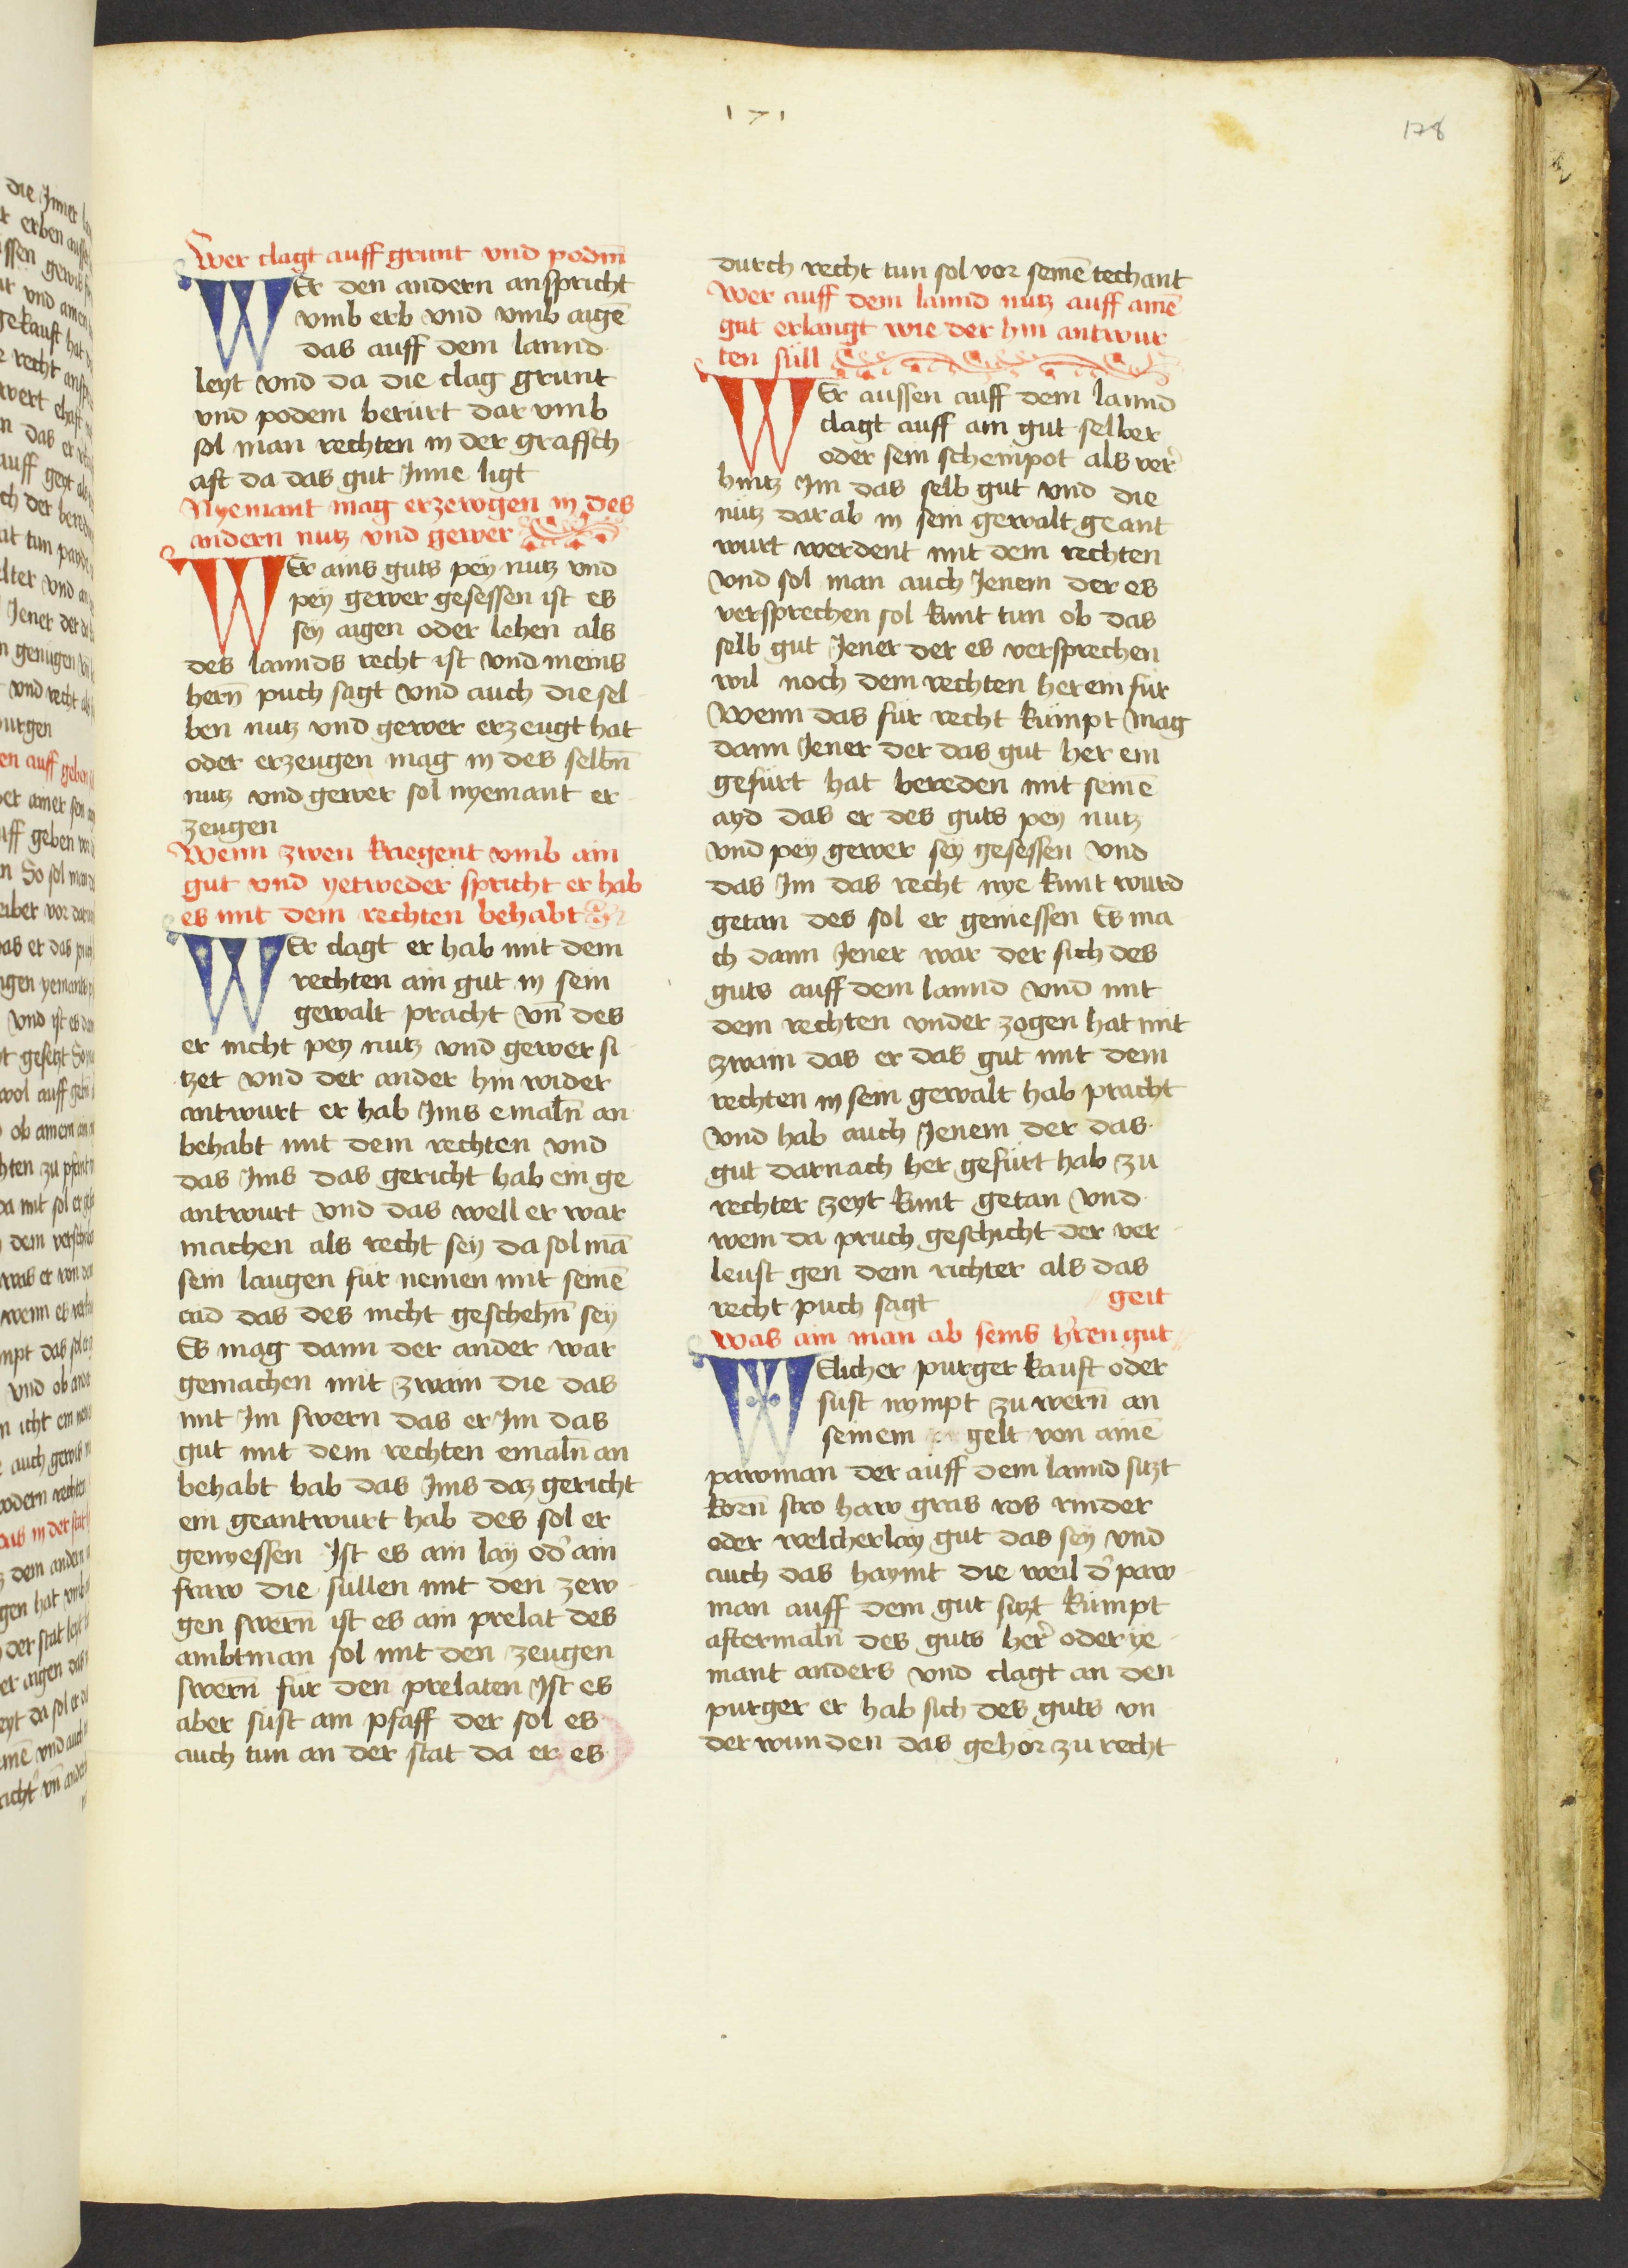 171
178
Wer clagt auff grunt vnd podm̄
WEr den andern anspricht
vmb erb vnd vmb aigē
das auff dem lannd
leyt vnd da die clag grunt
vnd podem berürt dar vmb
sol man rechten in der graffsch
aft da das gut Inne ligt
Nyemant mag erzewgen in des
andern nutz vnd gewer
WEr ains guts pey nutz vnd
pey gewer gesessen ist es
sey aigen oder lehen als
des lannds recht ist vnd meins
hern̄ puch sagt vnd auch die sel
ben nutz vnd gewer erzeugt hat
oder erzeugen mag in des selbn̄
nutz vnd gewer sol nyemant er
zeugen
Wenn zwen kriegent vmb ain
gut vnd yetweder spricht er hab
es mit dem rechten behabt
WEr clagt er hab mit dem
rechten ain gut in sein
gewalt pracht vn̄ des
er nicht pey nutz vnd gewer si
tzet vnd der ander hin wider
antwurt er hab Ims emaln̄ an
behabt mit dem rechten vnd
das Ims das gericht hab ein ge
antwurt vnd das well er war
machen als recht sey da sol mā
sein laugen für nemen mit seinē
aid das des nicht geschehn̄ sey
Es mag dann der ander war
gemachen mit zwain die das
mit Im swern das er Im das
gut mit dem rechten emaln̄ an
behabt hab das Ims daz gericht
ein geantwurt hab des sol er
genyessen Ist es ain lay od' ain
fraw die süllen mit den zew
gen swern̄ ist es ain prelat des
ambtman sol mit den zeugen
swern̄ für den prelaten Ist es
aber sust ain pfaff der sol es
auch tun an der stat da er es
durch recht tun sol vor seinē techant
Wer auff dem lannd nutz auff ainē
gut erlangt wie der hin antwur
ten süll
WEr aussen auff dem lannd
clagt auff ain gut selber
oder sein scheinpot als ver'
hintz Im das selb gut vnd die
nutz dar ab in sein gewalt geant
wurt werdent mit dem rechten
vnd sol man auch Jenem der es
versprechen sol kunt tun ob das
selb gut Jener der es versprechen
wil noch dem rechten herein für
Wenn das für recht kümpt mag
dann Jener der das gut her ein
gefürt hat bereden mit seinē
ayd das er des guts pey nutz
vnd pey gewer sey gesessen vnd
das Im das recht nye kunt wurd
getan des sol er geniessen Es ma
ch dann Jener war der sich des
guts auff dem lannd vnd mit
dem rechten vnder zogen hat mit
zwain das er das gut mit dem
rechten in sein gewalt hab pracht
vnd hab auch Jenem der das
gut darnach her gefürt hab zu
rechter zeyt kunt getan vnd
wem da pruch geschicht der ver
leust gen dem richter als das
recht puch sagt
geit
was ain man ab seins h'ren gut
WElicher purger kauft oder
sust nympt zu wern̄ an
seinem gelt von ainē
pawman der auff dem lannd sitzt
korn̄ stro haw gras ros rinder
oder welcherlay gut das sey vnd
auch das haymt die weil d' paw
man auff dem gut sitzt kümpt
aftermaln̄ des guts her' oder ye
mant anders vnd clagt an den
purger er hab sich des guts vn
der wunden das gehor zu recht